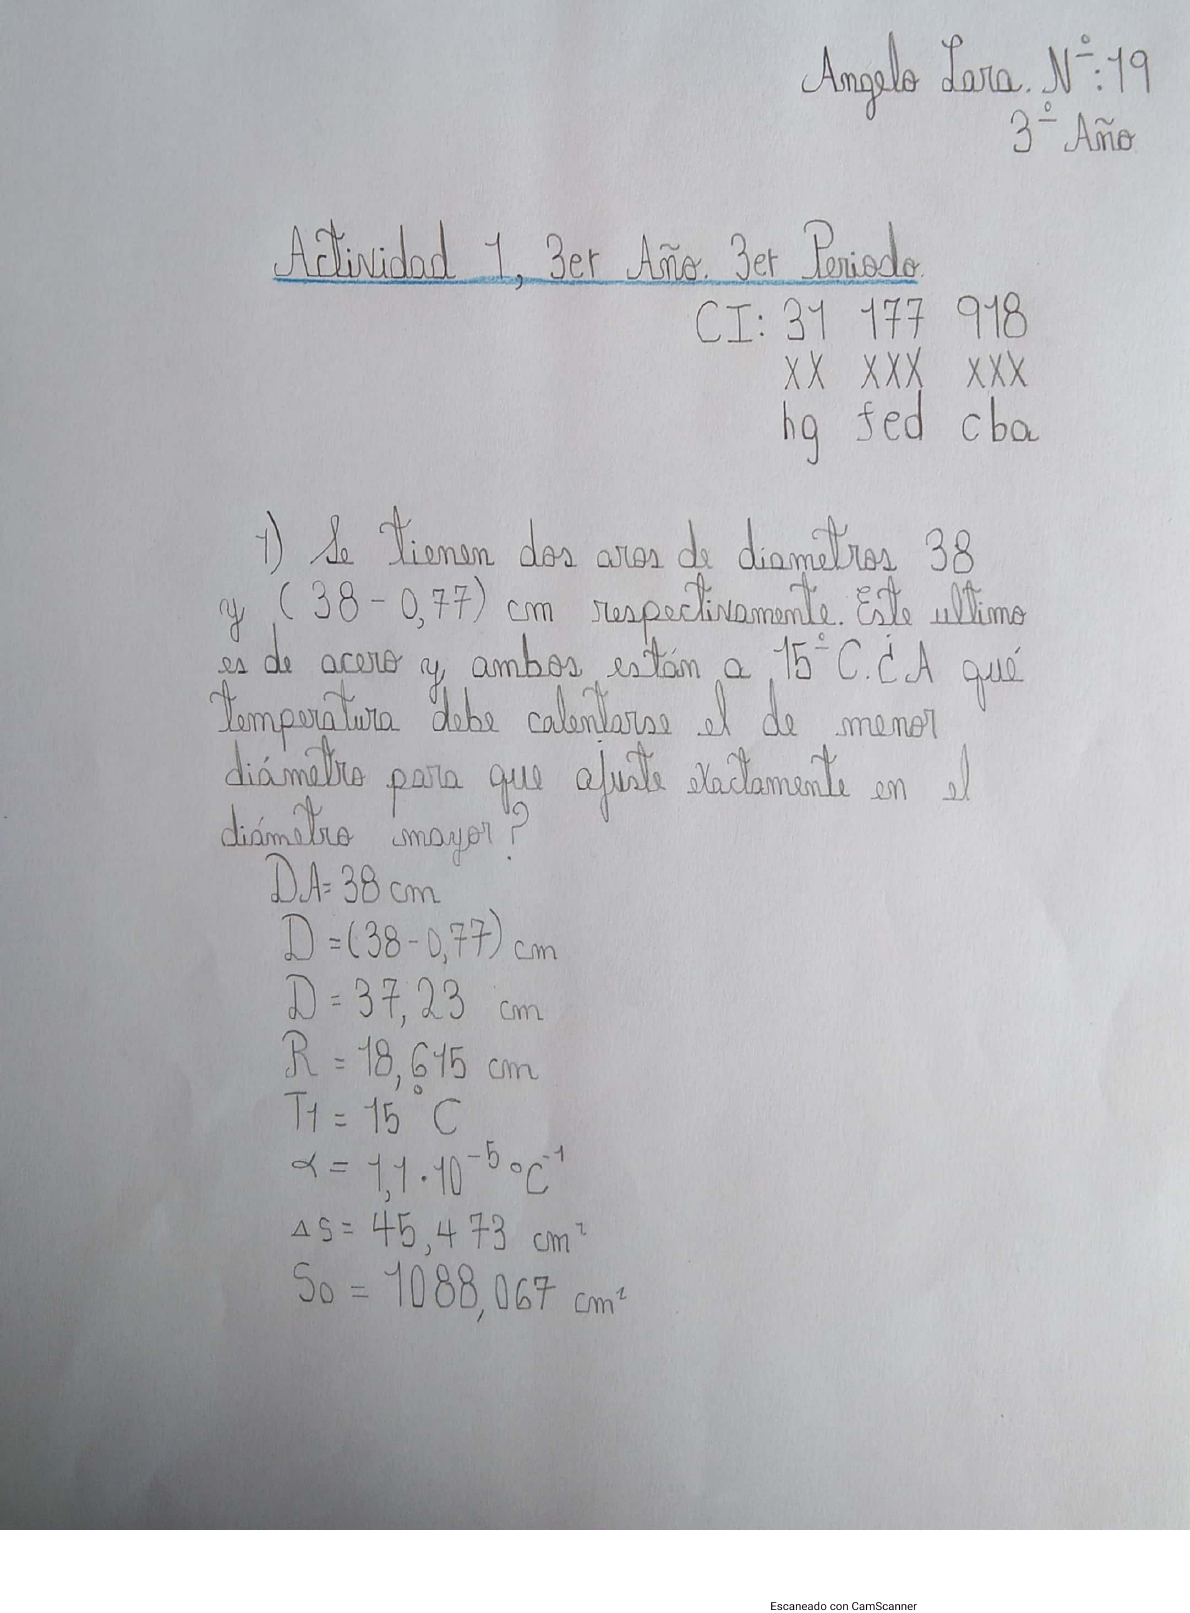 Angelo Lara. Nº: 19
3º Año
Actividad 1, 3er Año. 3er Periodo.
CI: 31 177 918
XX XXX XXX
hg fed cba
1) Se tienen dos aros de diametros 38
y (38-0,77) cm respectivamente. Este ultimo
es de acero y ambos están a 15°C. ¿A qué
temperatura debe calentarse el de menor
diámetro para que ajuste exactamente en el
diámetro mayor?
DA= 38 cm
D =(38-0,77) cm
D = 37,23 cm
R = 18,615 cm
T1 = 15°C
α = 1,1·10⁻⁵ °C⁻¹
ΔS= 45,473 cm²
So = 1088,067 cm²
Escaneado con CamScanner